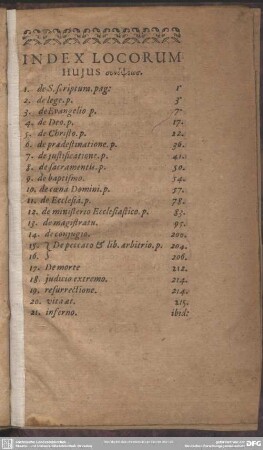 INDEX LOCORUM
HUJUS συνόψεως.
1. de S. scriptura. pag: 1.
2. de lege. p. 5.
3. de Evangelio p. 7.
4. de Deo. p. 17.
5. de Christo. p. 22.
6. de prædestinatione. p. 36.
7. de justificatione. p. 41.
8. de sacramentis. p. 50.
9. de baptismo. 54.
10. de cœna Domini. p. 57.
11. de Ecclesia. p. 78.
12. de ministerio Ecclesiastico. p. 83.
13. de magistratu. 97.
14. de conjugio. 200.
15. } De peccato & lib. arbitrio, p. 204.
16. 206.
17. De morte 212.
18. judicio extremo. 214.
19. resurrectione. 214.
20. vita æt. 215.
21. inferno. ibid: